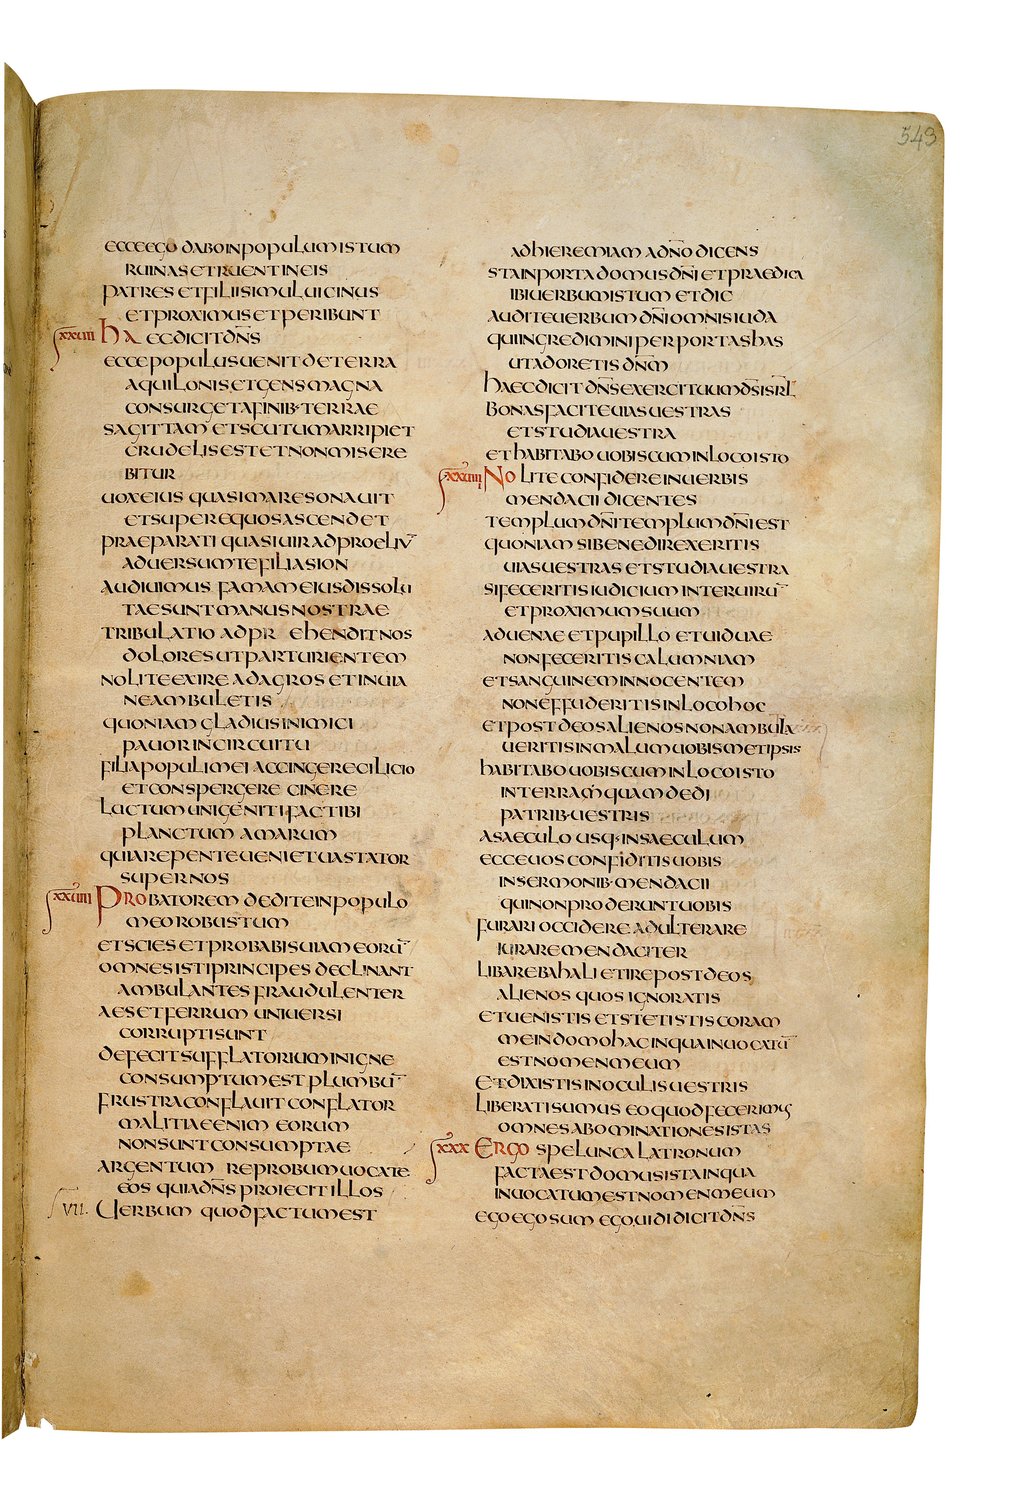 543
ecce ego dabo in populum istum
ruinas et ruent in eis
patres et filii simul uicinus
et proximus et peribunt
xxuii Haec dicit dn̄s
ecce populus uenit de terra
aquilonis et gens magna
consurget a finib· terrae
sagittam et scutum arripiet
crudelis est et non misere
bitur
uox eius quasi mare sonauit
et super equos ascendet
praeparati quasi uir ad proeliū
aduersum te filia sion
audiuimus famam eius dissolu
tae sunt manus nostrae
tribulatio adpr ehendit nos
dolores ut parturientem
nolite exire ad agros et in uia
ne ambuletis
quoniam gladius inimici
pauor in circuitu
filia populi mei accingere cilicio
et conspergere cinere
luctum unigeniti fac tibi
planctum amarum
quia repente ueniet uastator
super nos
xxuiii Probatorem dedi te in populo
meo robustum
et scies et probabis uiam eorū
omnes isti principes declinant
ambulantes fraudulenter
aes et ferrum uniuersi
corrupti sunt
defecit sufflatorium in igne
consumptum est plumbū
frustra conflauit conflator
malitiae enim eorum
non sunt consumptae
argentum reprobum uocate
eos quia dn̄s proiecit illos
VII. Uerbum quod factum est
ad hieremiam a dn̄o dicens
sta in porta domus dn̄i et praedica
ibi uerbum istum et dic
audite uerbum dn̄i omnis iuda
qui ingredimini per portas has
ut adoretis dn̄m
haec dicit dn̄s exercituum d̄s isrl̄
bonas facite uias uestras
et studia uestra
et habitabo uobiscum in loco isto
xxuiiii Nolite confidere in uerbis
mendacii dicentes
templum dn̄i templum dn̄i est
quoniam si bene direxeritis
uias uestras et studia uestra
si feceritis iudicium inter uirū
et proximum suum
aduenae et pupillo et uiduae
non feceritis calumniam
et sanguinem innocentem
non effuderitis in loco hoc
et post deos alienos non ambula
ueritis in malum uobismetipsis
habitabo uobiscum in loco isto
in terram quam dedi
patrib· uestris
a saeculo usq· in saeculum
ecce uos confiditis uobis
in sermonib· mendacii
qui non proderunt uobis
furari occidere adulterare
iurare mendaciter
libare bahali et ire post deos
alienos quos ignoratis
et uenistis et stetistis coram
me in domo hac in qua inuocatū
est nomen meum
et dixistis in oculis uestris
liberati sumus eo quod fecerimus
omnes abominationes istas
xxx Ergo spelunca latronum
facta est domus ista in qua
inuocatum est nomen meum
ego ego sum ego uidi dicit dn̄s